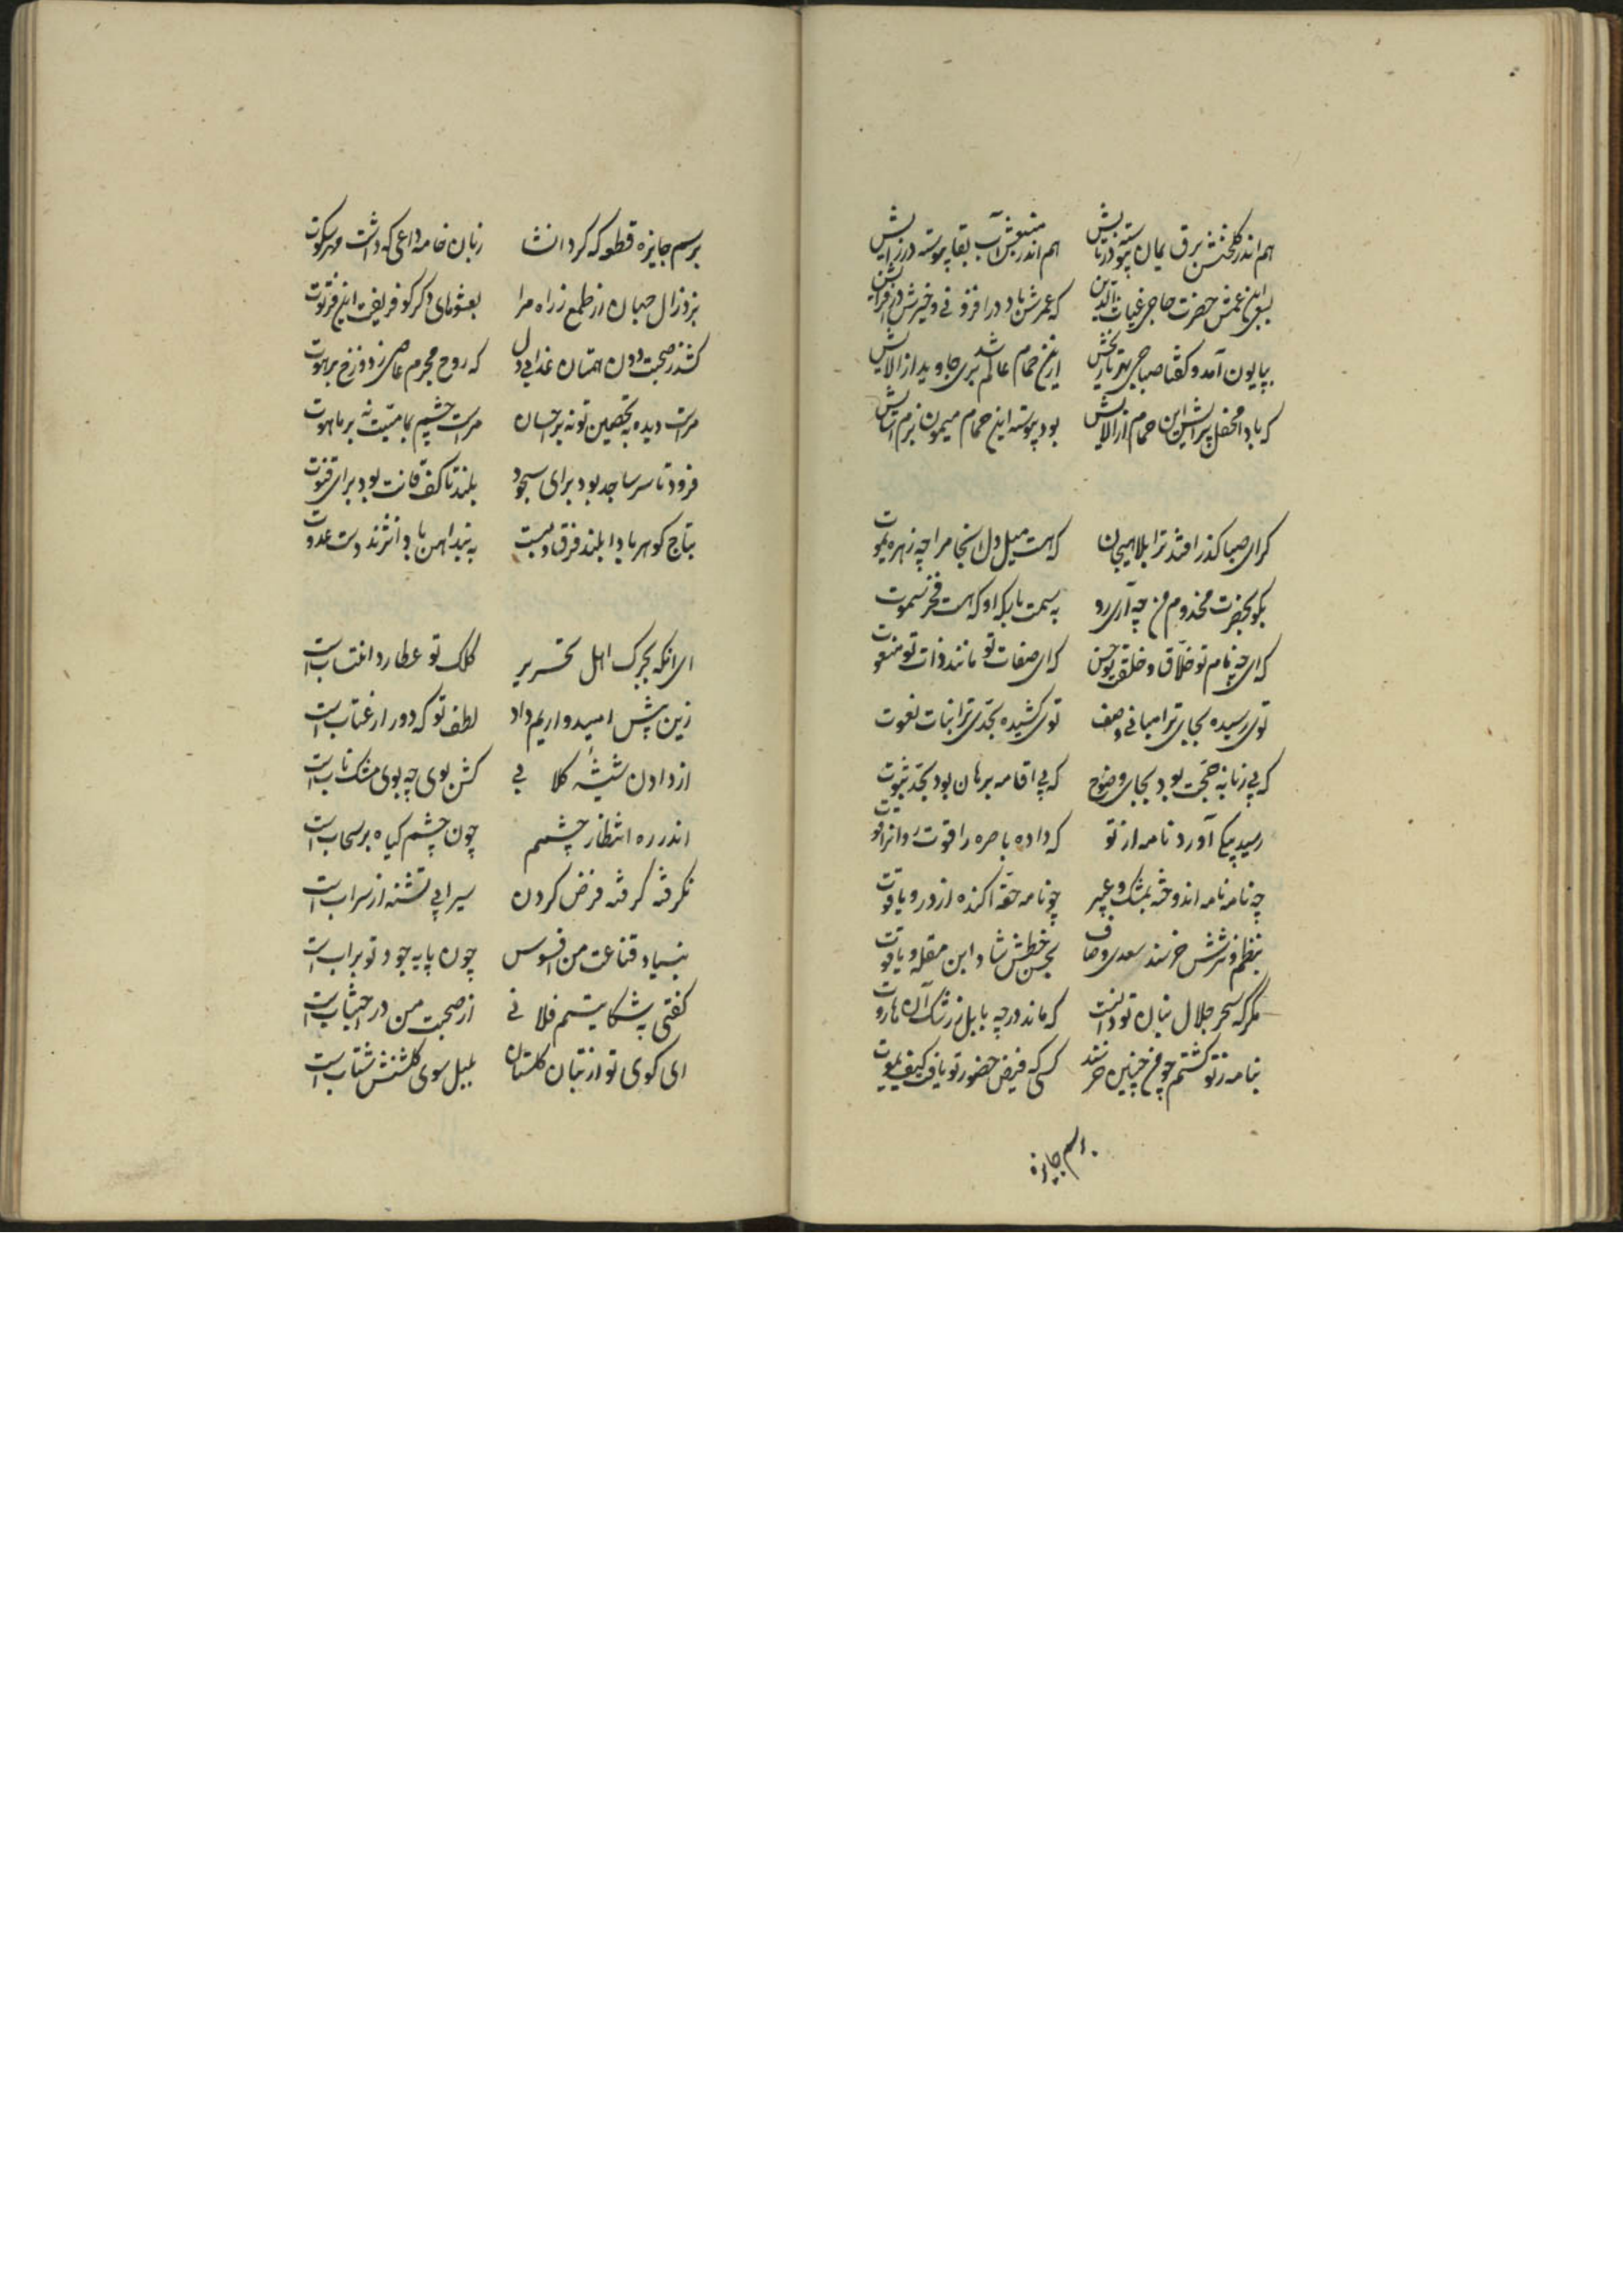 هم اندر گلخنش برق یمان پیوسته در تابش هم اندر منبعش آب بقا پیوسته در زایش
بسعی ابن عمش حضرت حاجی غیاث الدین که عمرش باد در افزونی و خیرش در افزایش
بپایون آمد و گفتا صباحی بهر تاریخش ازین حمام عالم شد بری جاوید از آلایش
که بادا محفل پیرایش این حمام از آلایش بود پیوسته این حمام میمون بزم آسایش
گر ای صبا گذر افتد ترا بلاهیجان که هست میل دل آنجا مرا چه زهره بموت
بگو بحضرت مخدوم من چه آری رو به سمت بارگه او که هست فخر سموت
که ای چه نام تو خلاق و خلق تو حسن که ای صفات تو مانند ذات تو منعوت
توی رسیده بجای ترا مبانی وصف توی کشیده بحدی ترا اثبات نعوت
که بی زبانه حجت بود بجای وضوح که بی اقامه برهان بود بحد ثبوت
رسید پیکی آورد نامه از تو که داده باصره را قوت و روانرا قوت
چه نامه نامه اندوخته بمشک و عبیر چو نامه حقه آکنده از در و یاقوت
بنظم و نثرش خرسند سعدی و وصاف بحسن خطش شاد ابن مقله و یاقوت
مگر که سحر حلال بنان تو دانست که ماند در چه بابل ز رشک آن هاروت
بنامه ز تو گشتم چو من چنین خرسند کسی که فیض حضور تو یافت کیف یموت
برسم جایزه
برسم جایزه قطعه که کرد انشا زبان خامه داعی که داشت مهر سکوت
بزد زال جهان از طمع ز راه مرا بعشوهای دگر گو فریفت این فرتوت
کشد ز صحبت دون همتان عذابی دل که روح مجرم عاصی ز دوزخ برهوت
مراست دیده به تحصین تو نه بر احسان مراست چشم بماهیت نه بر ماهوت
فرود تا سر ساجد بود برای سجود بلند تا کف قانت بود برای قنوت
بتاج گوهر بادا بلند فرق ولیت به بند آهن بادا نژند دست عدوت
ای آنکه بچرک اهل تحریر کلک تو عطارد انتساب است
زین پیش امیدواریم داد لطف تو که دور از عتاب است
از دادن شیشه گلابی کش بوی چه بوی مشک ناب است
اندر ره انتظار چشمم چون چشم گیاه بر سحاب است
نگرفته گرفته فرض کردن سیرابی تشنه از سراب است
بنیاد قناعت من افسوس چون پایه جود تو بر آب است
گفتی به شکایتم فلانی از صحبت من در اجتناب است
ای کوی تو از بتان گلستان بلبل سوی گلشنش شتاب است